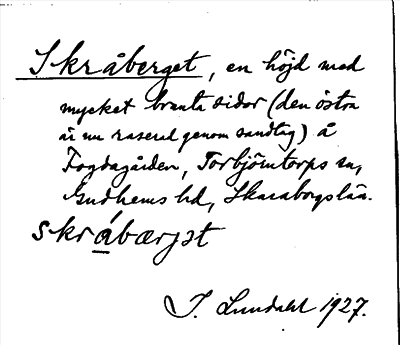 Skråberget, en höjd med
mycket branta sidor (den östra
är nu raserad genom sandtag) å
Fogdagården, Torbjörntorps sn,
Gudhems hd, Skaraborgslän.
skrábærjət
J. Lundahl 1927.